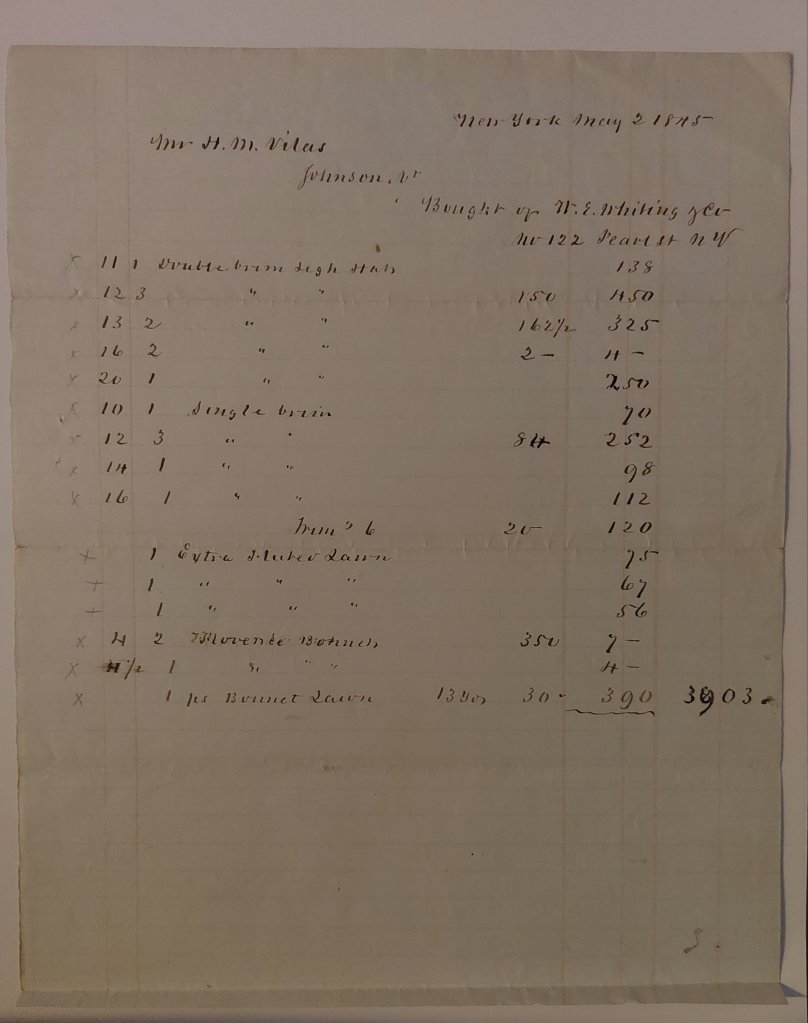 New York May 2 1845
Mr H. M. Vilas
Johnson, Vt
Bought of W. E. Whiting & Co
No 122 Pearl st N Y
x 11 1 Double brim Legh Hats 138
x 12 3 " " 150 450
x 13 2 " " 162 1/2 325
x 16 2 " " 2 – 4 –
x 20 1 " " 250
x 10 1 Single brim 70
x 12 3 " " 84 252
x 14 1 " " 98
x 16 1 " " 112
Trim 6 20 120
+ 1 Extra Lawn 75
+ 1 " " " 67
+ 1 " " " 56
x 4 2 Florence Bonnets 350 7 –
x 4 1/2 1 " " " 4 –
x 1 ps Bonnet Lawn 13 Yds 30 – 390 3903